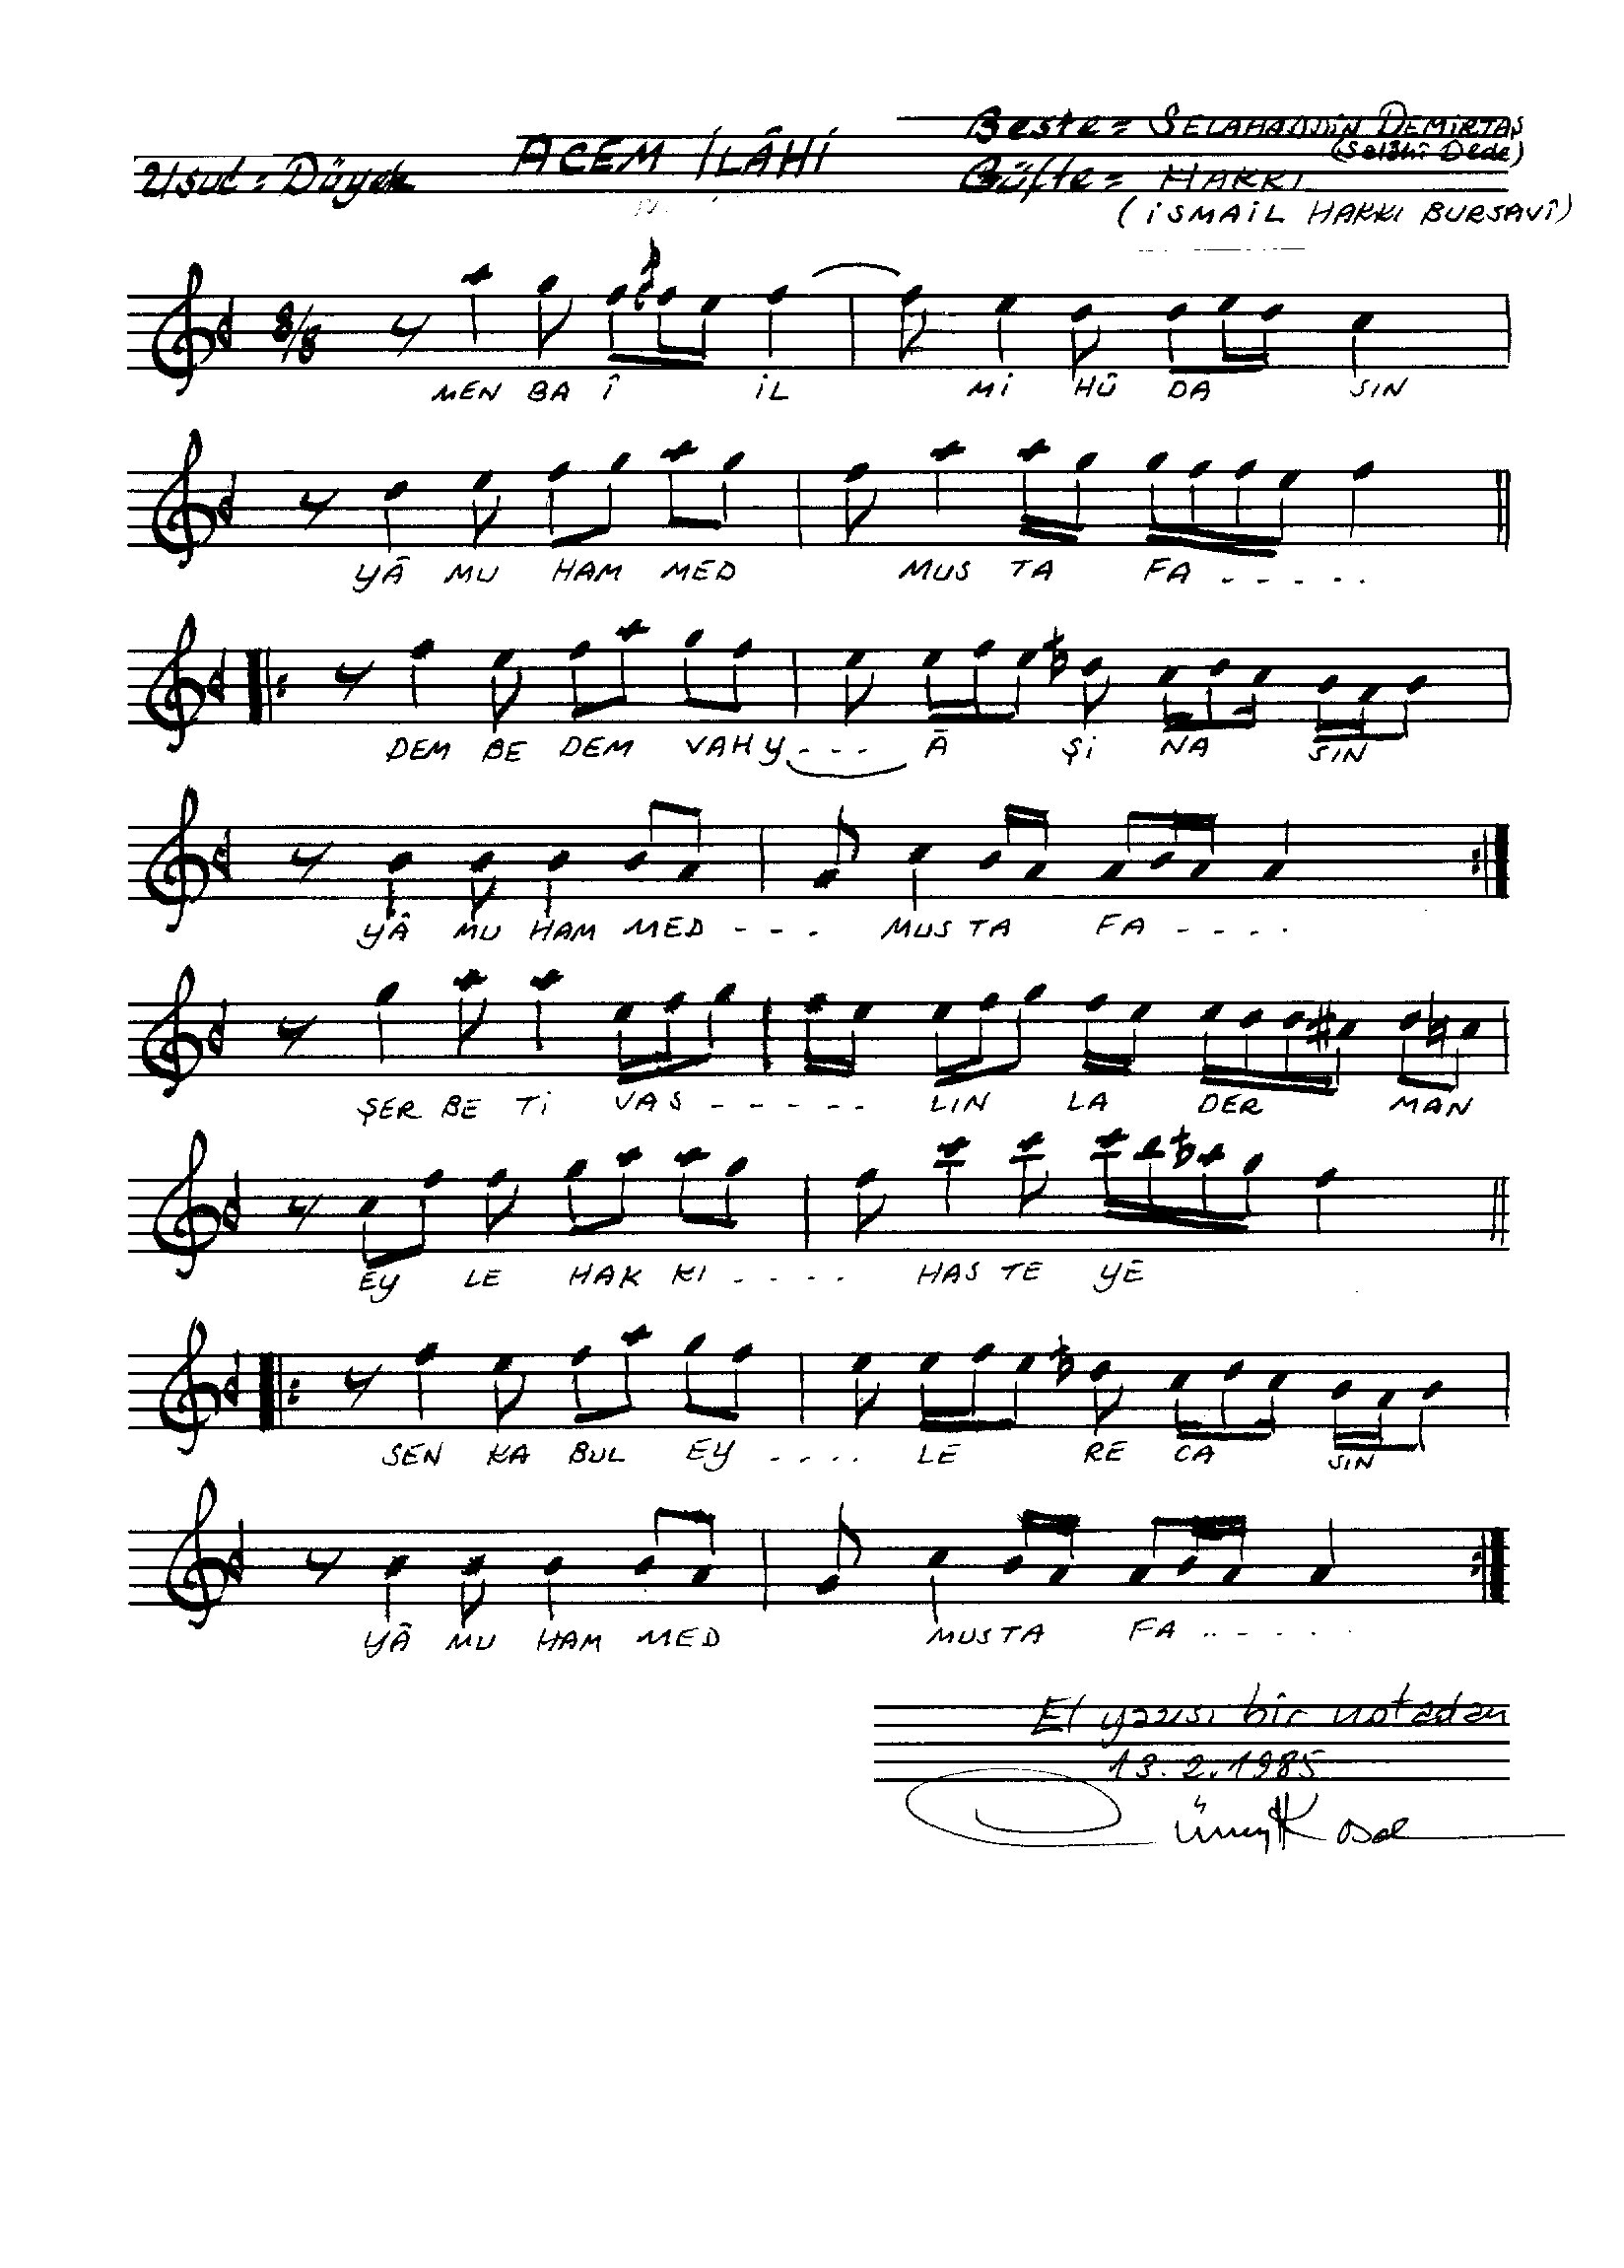 Beste = SELAHADDİN DEMİRTAŞ
(Selâhî Dede)
Usul : Düyek ACEM İLÂHİ Güfte = HAKKI
(İSMAİL HAKKI BURSAVÎ)
8/8
MEN BA Î İL Mİ HÛ DA SIN
YÂ MU HAM MED MUS TA FA - - - - .
DEM BE DEM VAHY - - - Â Şİ NA SIN
YÂ MU HAM MED - - - MUS TA FA - - - .
ŞER BE Tİ VAS - - - - - LIN LA DER MAN
EY LE HAK KI - - - . HAS TE YE
SEN KA BUL EY - . . . LE RE CA SIN
YÂ MU HAM MED MUS TA FA . . - - . .
El yazısı bir notadan
13.2.1985
Cüneyt Kosal